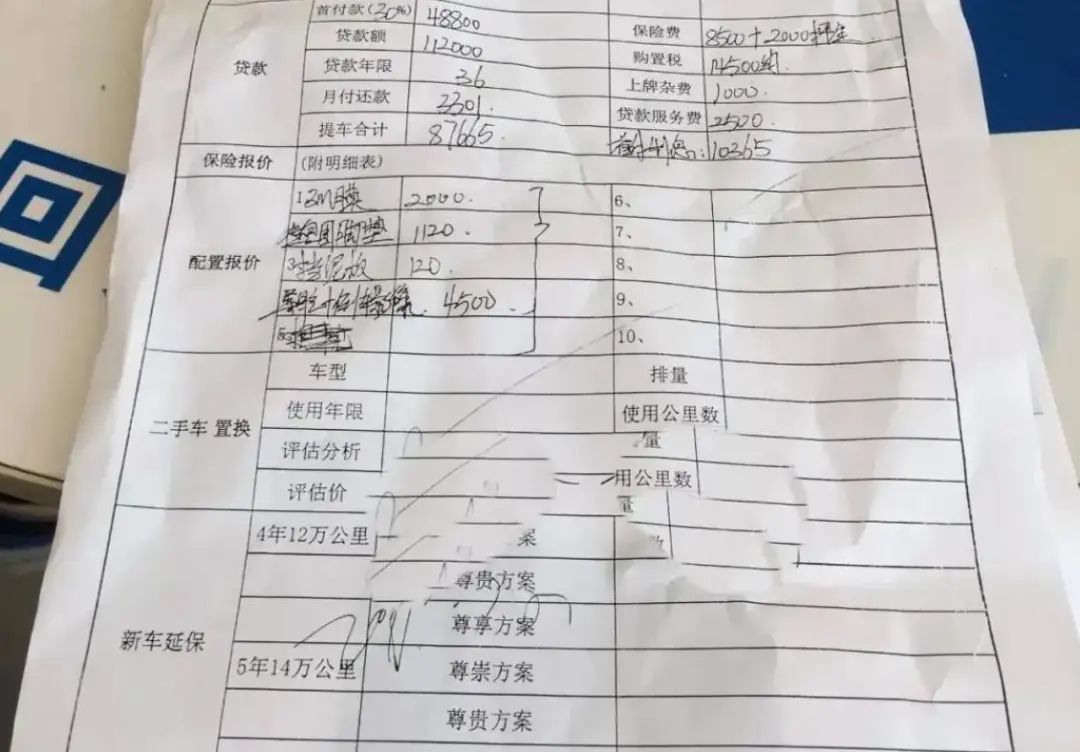 首付款(30%) 48800 保险费 8500+2000押金
贷款
贷款额 112000 购置税 14500
贷款年限 36 上牌杂费 1000.
月付还款 3301. 贷款服务费 2500.
提车合计 87665. :10365
保险报价 (附明细表)
配置报价
1 3M膜 2000. 6、
1120. 7、
3挡泥板 120. 8、
4500 9、
10、
二手车 置换
车型 排量
使用年限 使用公里数
评估分析 量
评估价 用公里数
量
新车延保
4年12万公里
尊贵方案
尊享方案
5年14万公里 尊崇方案
尊贵方案